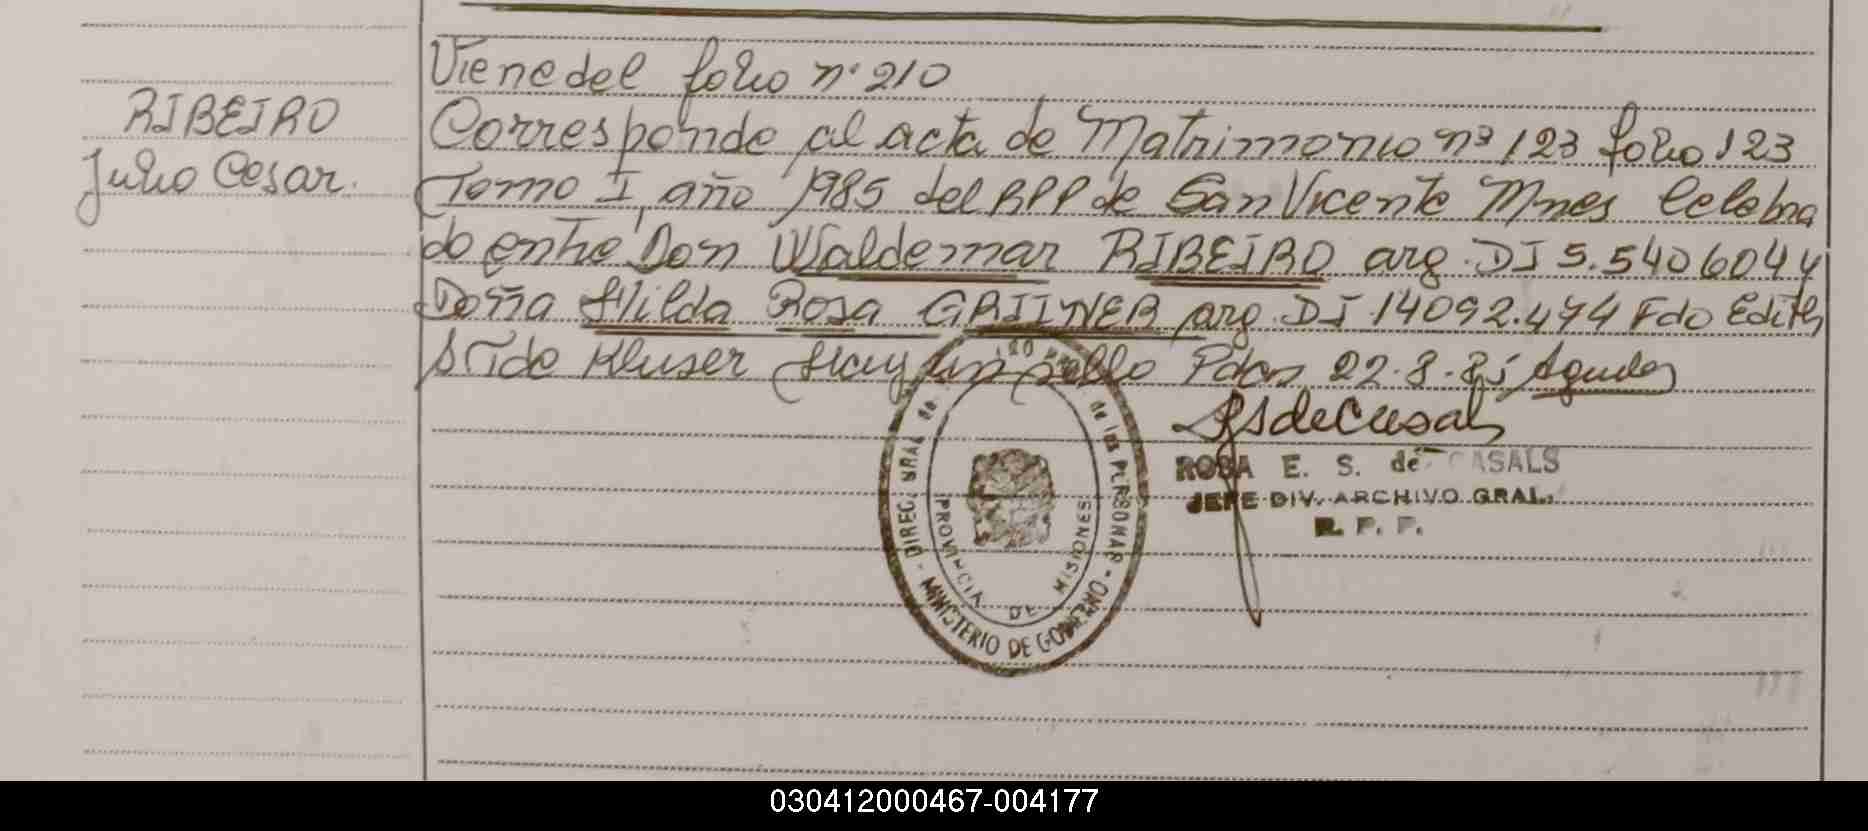 Viene del folio nº 210
RIBEIRO
Julio Cesar.
Corresponde al acta de Matrimonio nº 123 folio 123
Tomo I, año 1985 del RPP de San Vicente Mnes Celebra
do entre Don Waldemar RIBEIRO arg. DI 5.540604 y
Doña Hilda Rosa GRIINER arg. DI 14092.474 Fdo Edith
Kluser Hay un sello Pdas 22.8.85
ROSA E. S. de CASALS
JEFE DIV. ARCHIVO GRAL.
R. P. P.
DIREC. GRAL. de las PERSONAS - MINISTERIO DE GOBIERNO -
PROVINCIA DE MISIONES
030412000467-004177